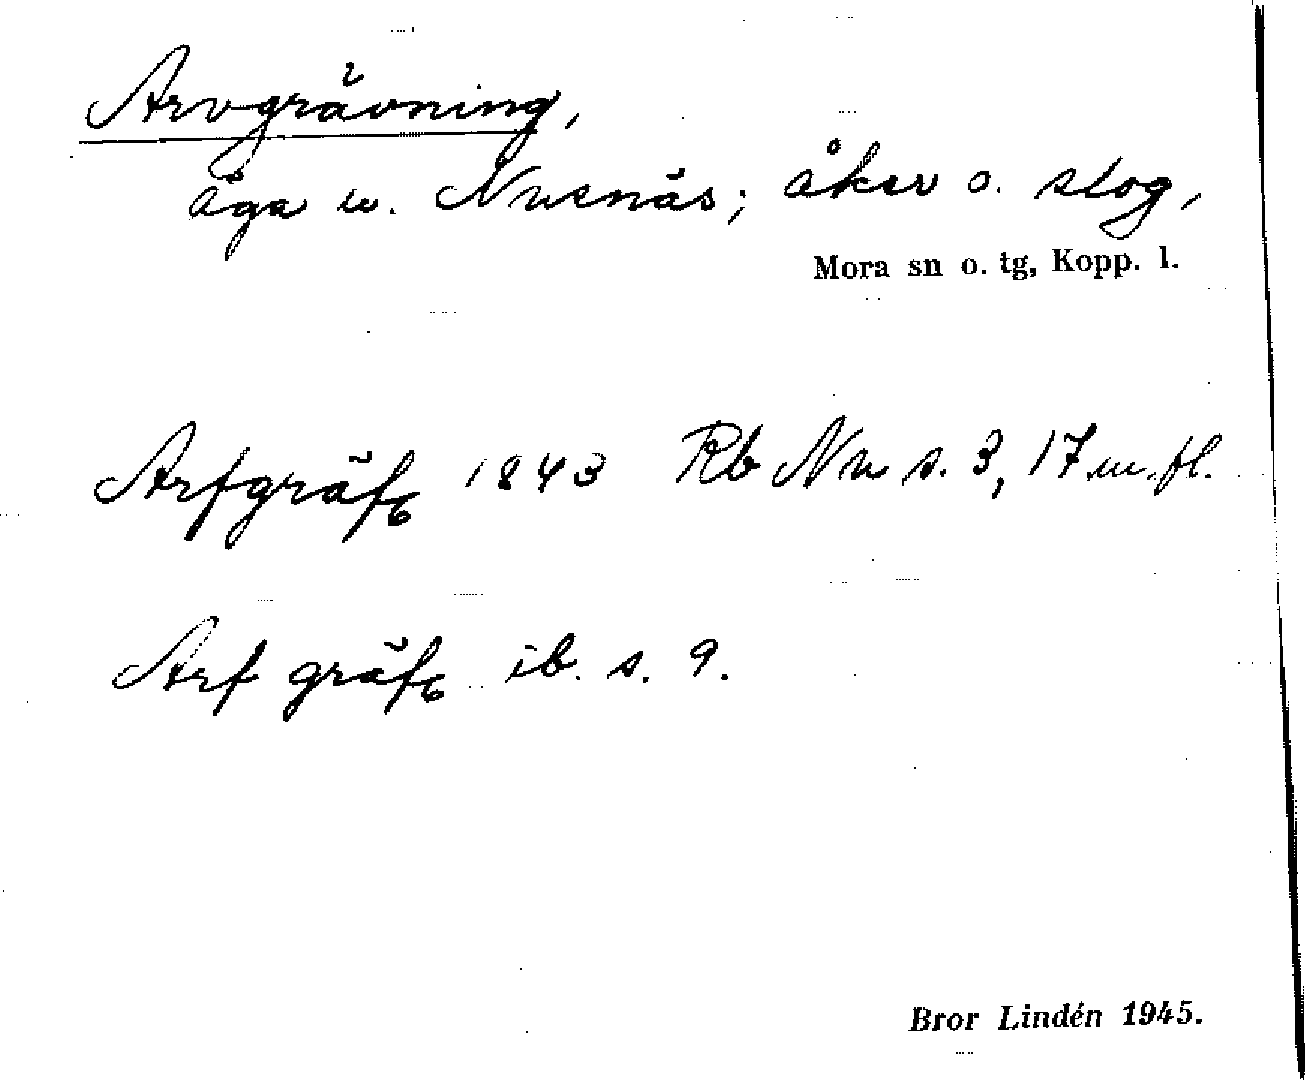 Arvgrävning,
äga w. Nusnäs; åker o. slog,
Mora sn o. tg, Kopp. l.
Arfgräfg 1843 Rb Nn s. 3, 17 m. fl.
Arf gräfg ib. s. 9.
Bror Lindén 1945.